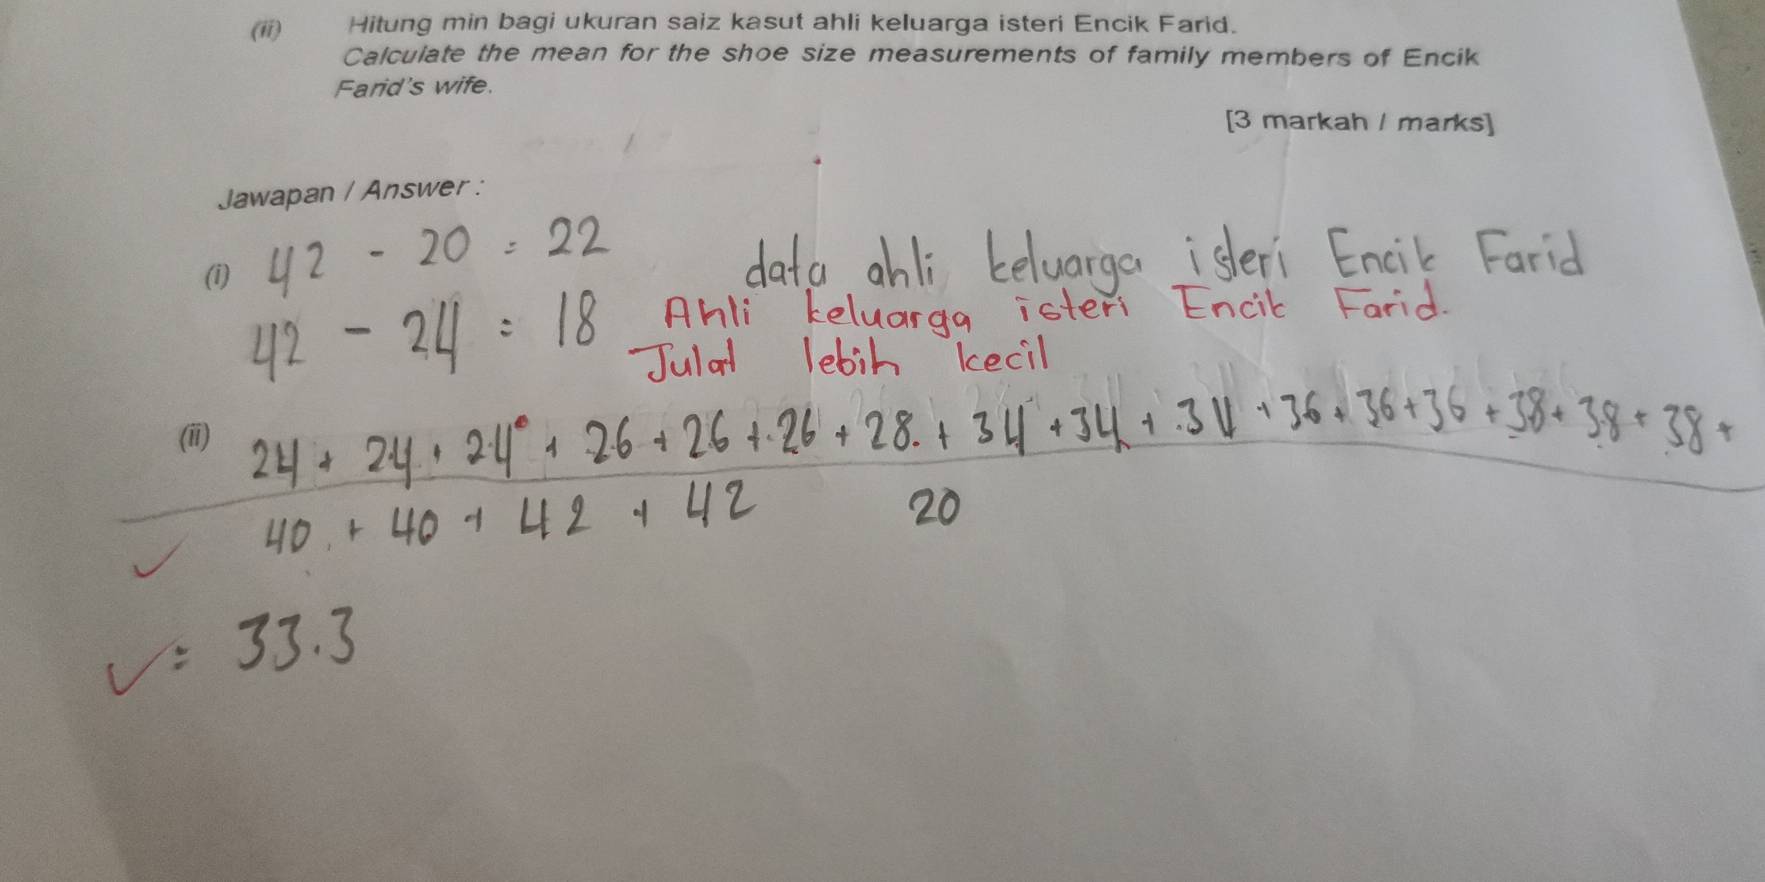 (ii) Hitung min bagi ukuran saiz kasut ahli keluarga isteri Encik Farid.
Calculate the mean for the shoe size measurements of family members of Encik
Farid's wife.
[3 markah / marks]
Jawapan / Answer :
(i) 42 - 20 = 22
data ahli keluarga isteri Encik Farid
42 - 24 = 18
Ahli keluarga isteri Encik Farid.
Julat lebih kecil
(ii) 24 + 24 + 24 + 26 + 26 + 26 + 28 + 34 + 34 + 34 + 36 + 36 + 36 + 38 + 38 + 38 +
40 + 40 + 42 + 42
20
✓ = 33.3